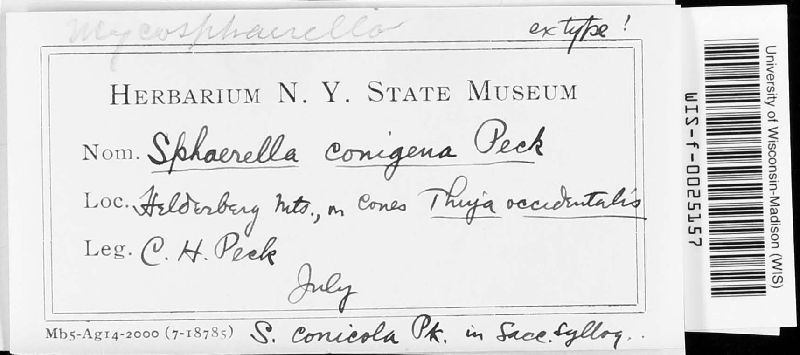 Mycosphaerella
ex type!
HERBARIUM N. Y. STATE MUSEUM
Nom. Sphaerella conigena Peck
Loc. Helderberg Mts., on Cones Thuja occidentalis
Leg. C. H. Peck
July
Mb5-Ag14-2000 (7-18785) S. conicola Pk. in Sacc. Syllog..
University of Wisconsin-Madison (WIS)
WIS-f-0025157